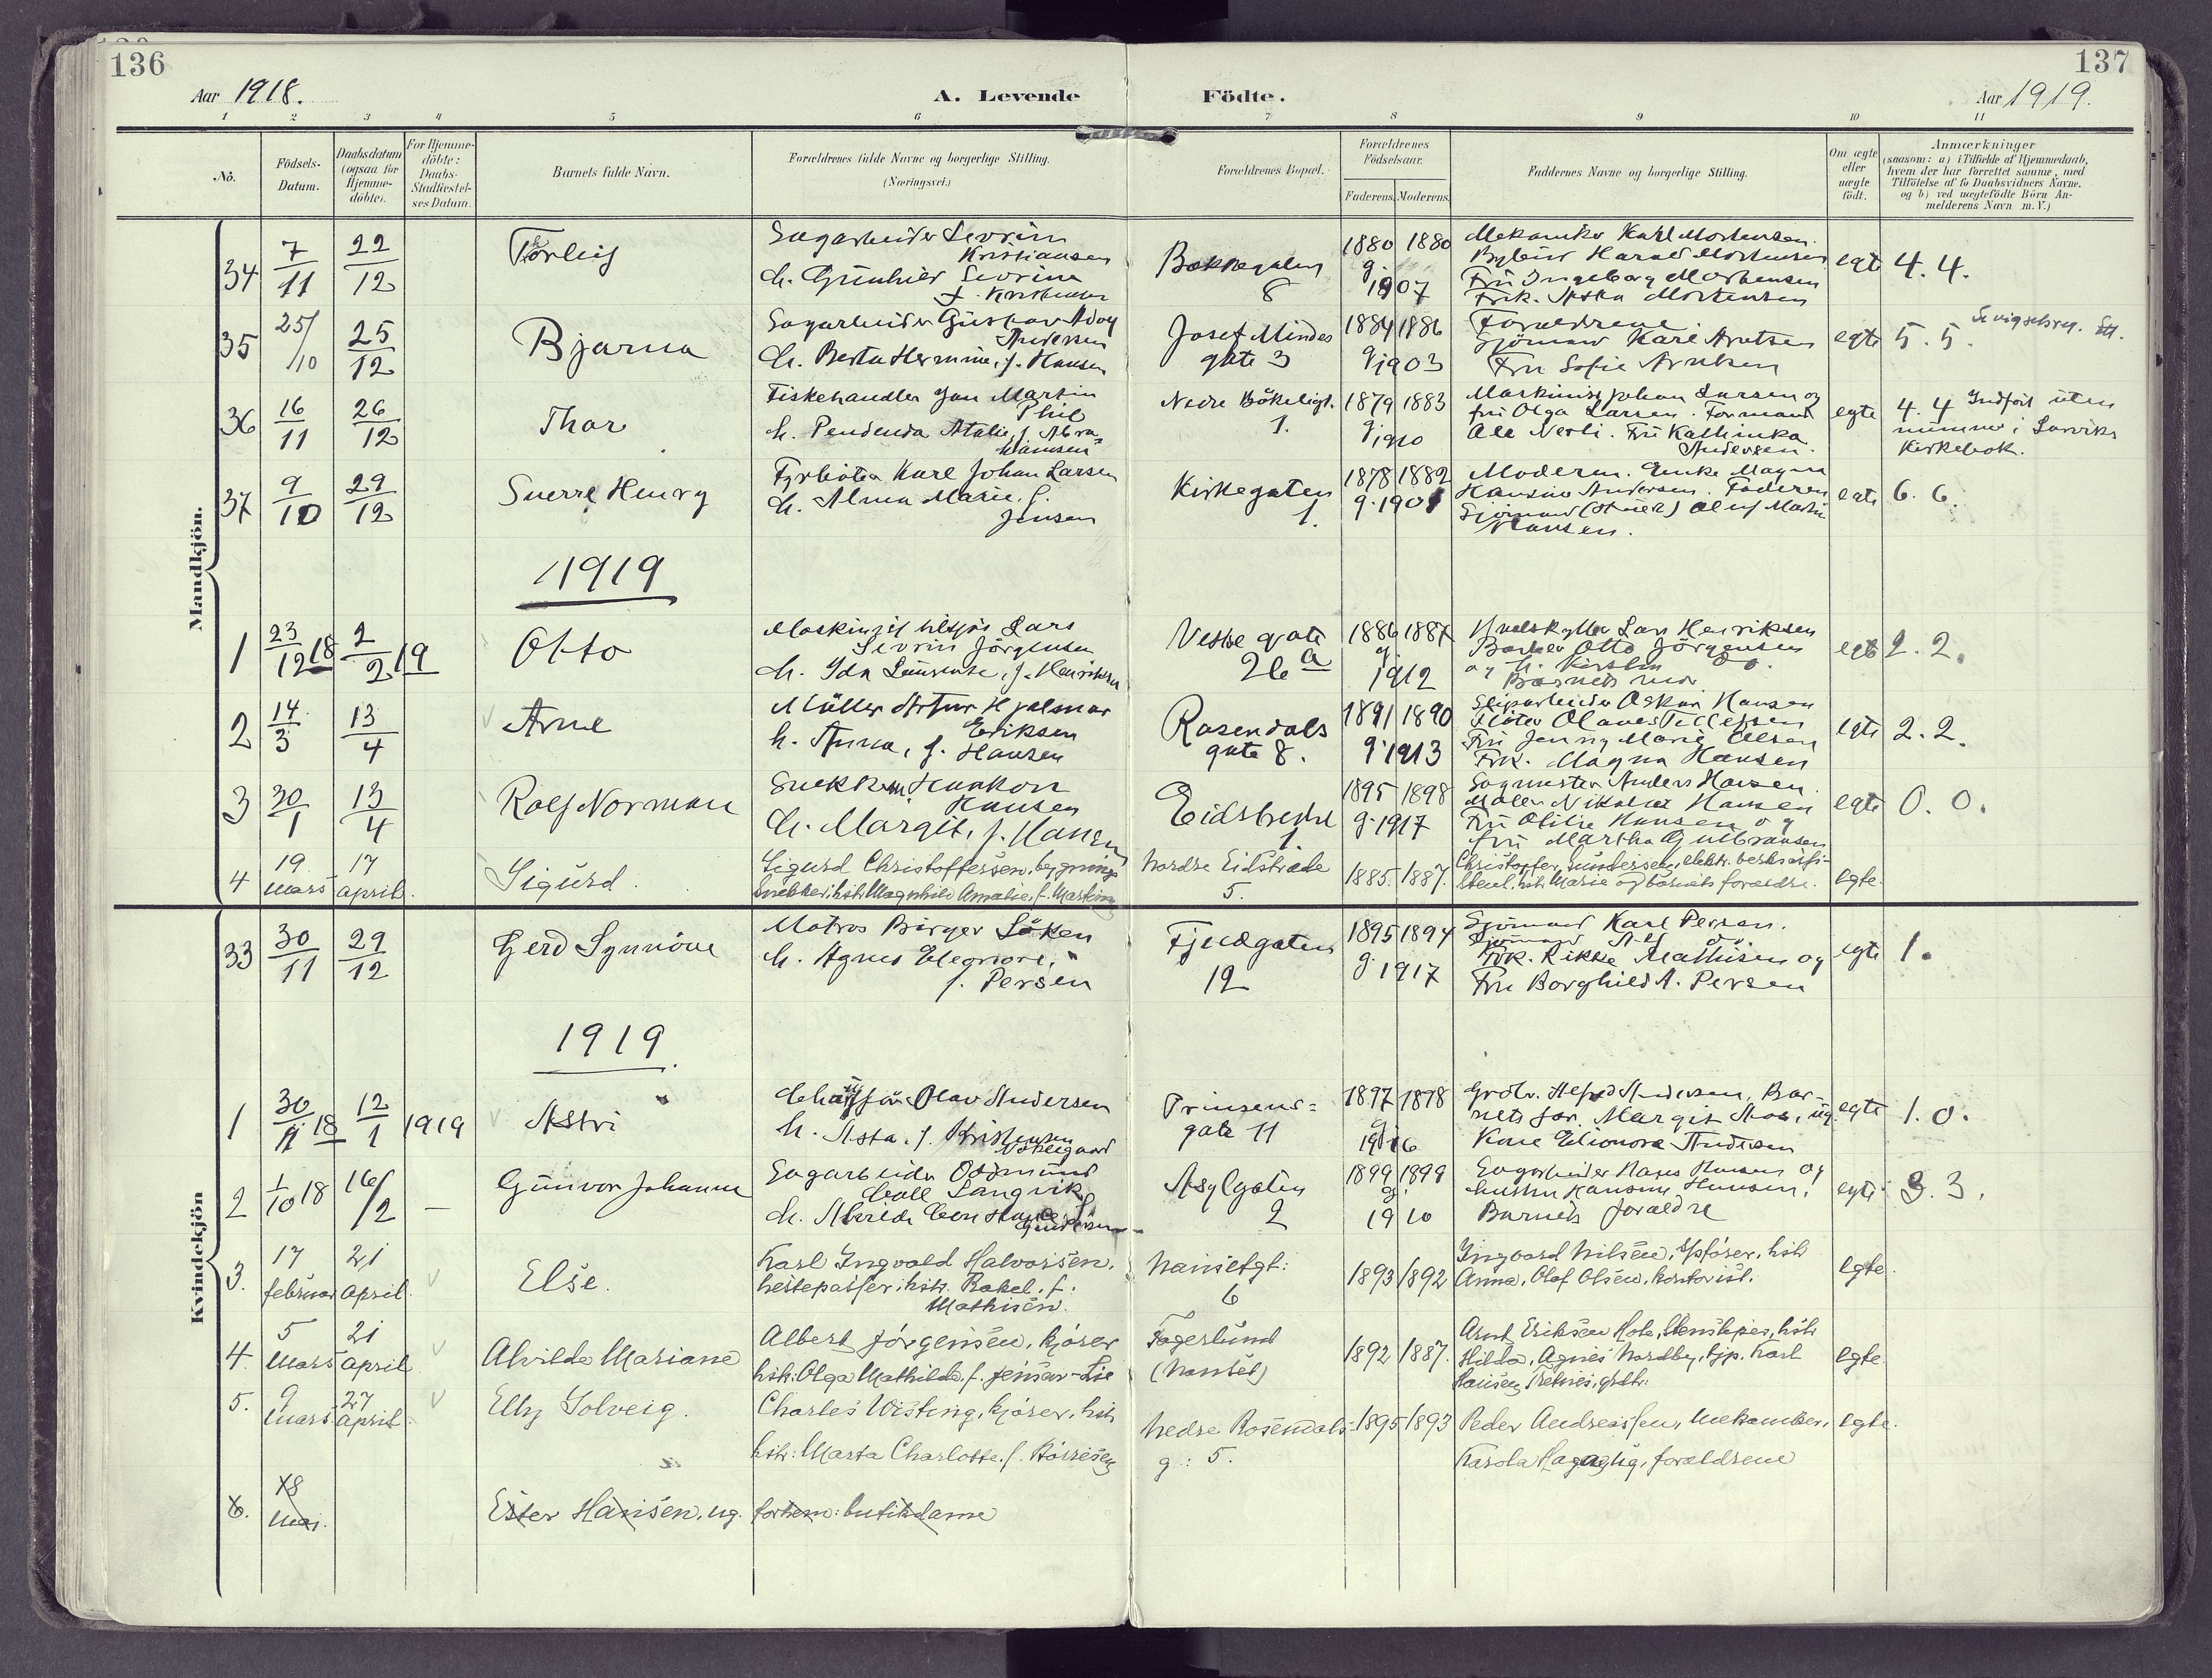 136
137
Aar 1918.
A. Levende
Födte.
Aar 1919.
1 2 3 4 5 6 7 8 9 10 11
No.
Födsels-
Datum.
Daabsdatum
(ogsaa for
Hjemme-
döbte).
For Hjemme-
döbte:
Daabs-
Stadfæstel-
ses Datum.
Barnets fulde Navn.
Forældrenes fulde Navne og borgerlige Stilling.
(Næringsvei.)
Forældrenes Bopæl.
Forældrenes
Födselsaar.
Faderens.
Moderens.
Faddernes Navne og borgerlige Stilling.
Om ægte
eller
uægte
födt.
Anmærkninger
(saasom: a) i Tilfælde af Hjemmedaab,
hvem der har forrettet samme, med
Tilföielse af to Daabsvidners Navne.
og b) ved uægtefödte Börn An-
melderens Navn m. V.)
Mandkjön.
34 7/11 22/12 Thorleif
Sagarbeider Sevrin
Kristiansen
h. Gunhild Sevrine
f. Kristensen
Bøkkegaten
8
1880 1880
g.
1907
Mekaniker Karl Mortensen.
Harald Mortensen
Fru Ingeborg Mortensen
Frk. Aska Mortensen
egte 4. 4.
35 25/10 25/12 Bjarne
Sagarbeider Gustav Adolf
Andersen
h. Berta Hermine, f. Hansen
Josef Mindes
gate 3
1884 1886
g. 1903
Forældrene.
Sjömand Karl Arntsen
Fru Sofie Arntsen
egte 5. 5.
36 16/11 26/12 Thor
Fiskehandler Jan Martin
Phil
h. Pendenda Atalie, f. Abra-
hamsen
Nedre Bökeligt.
1.
1879 1883
g. 1910
Maskinist Johan Larsen og
fru Olga Larsen. Formand
Ole Nerli. Fru Kathinka
Andersen.
egte 4. 4 Indfört uten
nummer i Larviks
kirkebok.
37 9/10 29/12 Sverre Henry
Fyrböter Karl Johan Larsen
h. Alma Marie, f.
Jensen
Kirkegaten
1.
1878 1882
g. 1901
Moderen. Enke Magna
Hansine Andersen. Faderen
Sjömand Oluf Martin
Hansen.
egte 6. 6.
1919
1 23/12 18 2/2 19 Otto
Maskinist Lars
Sevrin Jörgensen
h. Ida Laurense, f. Henriksen
Vestre gate
26a
1886 1887
g.
1912
Hvalskytter Lars Henriksen
Barber Otto Jörgensen
og h. Kirsten do.
Barnets mor
egte 2. 2.
2 14/3 13/4 Arne
Möller Artur Hjalmar
Eriksen
h. Anna, f. Hansen
Rosendals
gate 8.
1891 1890
g. 1913
Sliparbeider Oskar Hansen
Flöter Olaves Tellefsen
Fru Jenny Marie Olsen
Frk. Magna Hansen
egte 2. 2.
3 30/1 13/4 Rolf Norman
Snekker Haakon
Hansen
h. Margit, f. Hansen
Eidstredet
1.
1895 1898
g. 1917
Sagmester Anders Hansen.
Maler Nikolai Hansen
Fru Otilie Hansen og
fru Martha Gulbransen
egte 0. 0.
4 19 mars 17 april. Sigurd.
Sigurd Christoffersen, bygnings-
snekker, hstr. Magnhild Amalie, f. Martinsen
Nordre Eidstræde
5.
1885. 1887.
Christoffer Gundersen, elektr. verks
hstr. Marie og barnets forældre.
egte.
Kvindekjön
33 30/11 29/12 Gerd Synnöve
Matros Birger Löken
h. Agnes Elegnore,
f. Persen
Fjeldgaten
12
1895 1894
g. 1917
Sjömand Karl Persen.
Sjömand do.
Frk. Rikke Mathisen og
Fru Borghild A. Persen
egte 1.
1919.
1 30/11 18 12/1 1919 Astri
Chaufför Olav Andersen
h. Asta, f. Kristensen
Nökleg aard
Prinsens-
gate 11
1897 1898
g.
1916
Grdbr. Alfred Andersen, Bar-
nets far. Margit Moe, ug.
Kone Elionora Andersen
egte 1. 0.
2 1/10 18 16/2 — Gunvor Johanne
Sagarbeider Osmund
Coll Langvik
h. Alvide Constance f.
Gundersen
Asylgaten
2
1899 1899
g.
1910
Sagarbeider Hans Hansen og
hustru Hansine Hansen,
Barnets forældre
egte 3. 3.
3. 17 februar 21 april. Else.
Karl Ingvald Halvorsen,
hestepasser, hstr. Rakel, f.
Mathisen.
Nansetgt.
6
1893 1892
Ingvard Nilsen, opsöser, hstr.
Anna, Olaf Olsen, kontorist.
egte.
4. 5 mars 21 april Alvilde Mariane
Albert Jörgensen, kjörer
hstr: Olga Mathilde, f. Jensen-Lie
Fagerlund
(Nanset)
1892 1887.
Arnt Eriksen Hole, hstr
Hilda, Agnes Nordby, tjp. Karl
Hansen Tretnes, grdbr.
egte
5. 9 mars 27 april. Elly Solveig.
Charles Wisting, kjörer, hstr
hstr: Marta Charlotte, f. Börresen
Nedre Rosendals-
g: 5.
1895 1893
Peder Andreassen, mekaniker,
Karola Haga ug., forældrene
egte.
6. 18 mai. Ester Hansen, ug. forhenv: butikdame